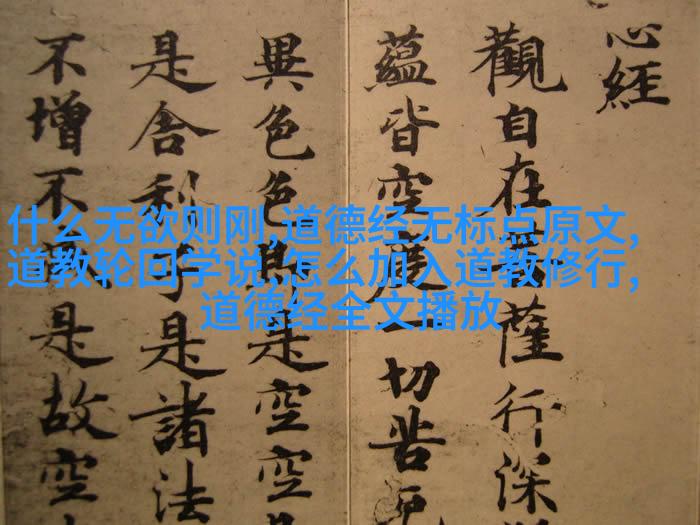 心經
觀自在菩薩行深
蘊皆空度一切苦厄
異色色即是空空
是舍利子是諸法
不增不減是故空
什么无欲则刚,道德经无标点原文,
道教轮回学说,怎么加入道教修行,
道德经全文播放